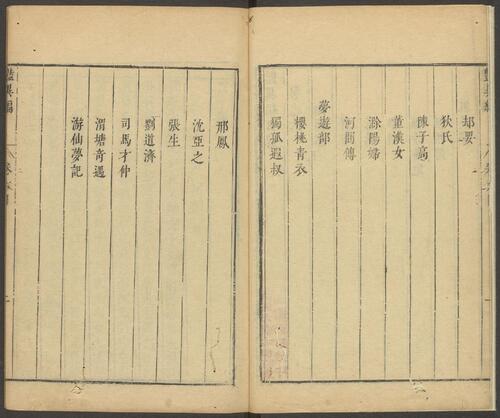 却要
狄氏
陳子高
董漢女
滁陽婦
河間傳
夢遊部
櫻桃青衣
獨孤遐叔
邢鳳
沈亞之
張生
劉道濟
司馬才仲
渭塘奇遇
游仙夢記
豔異編